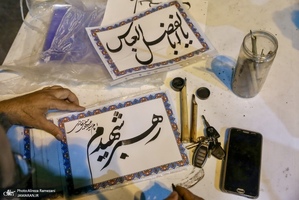 یا اباالفضل العباس
رهبر شهیدم
Photo:Alireza Ramezani
JAMARAN.IR